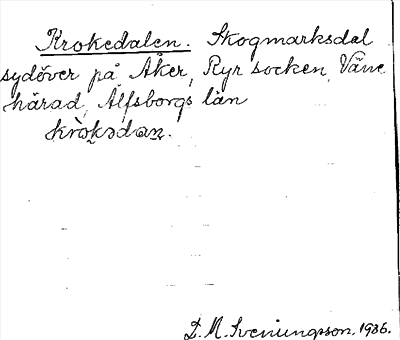 Krokedalen. Skogmarksdal
sydöver på Åker, Ryr socken, Väne
härad, Älfsborgs län
kròkədan.
D. M. Sveningsson, 1936.